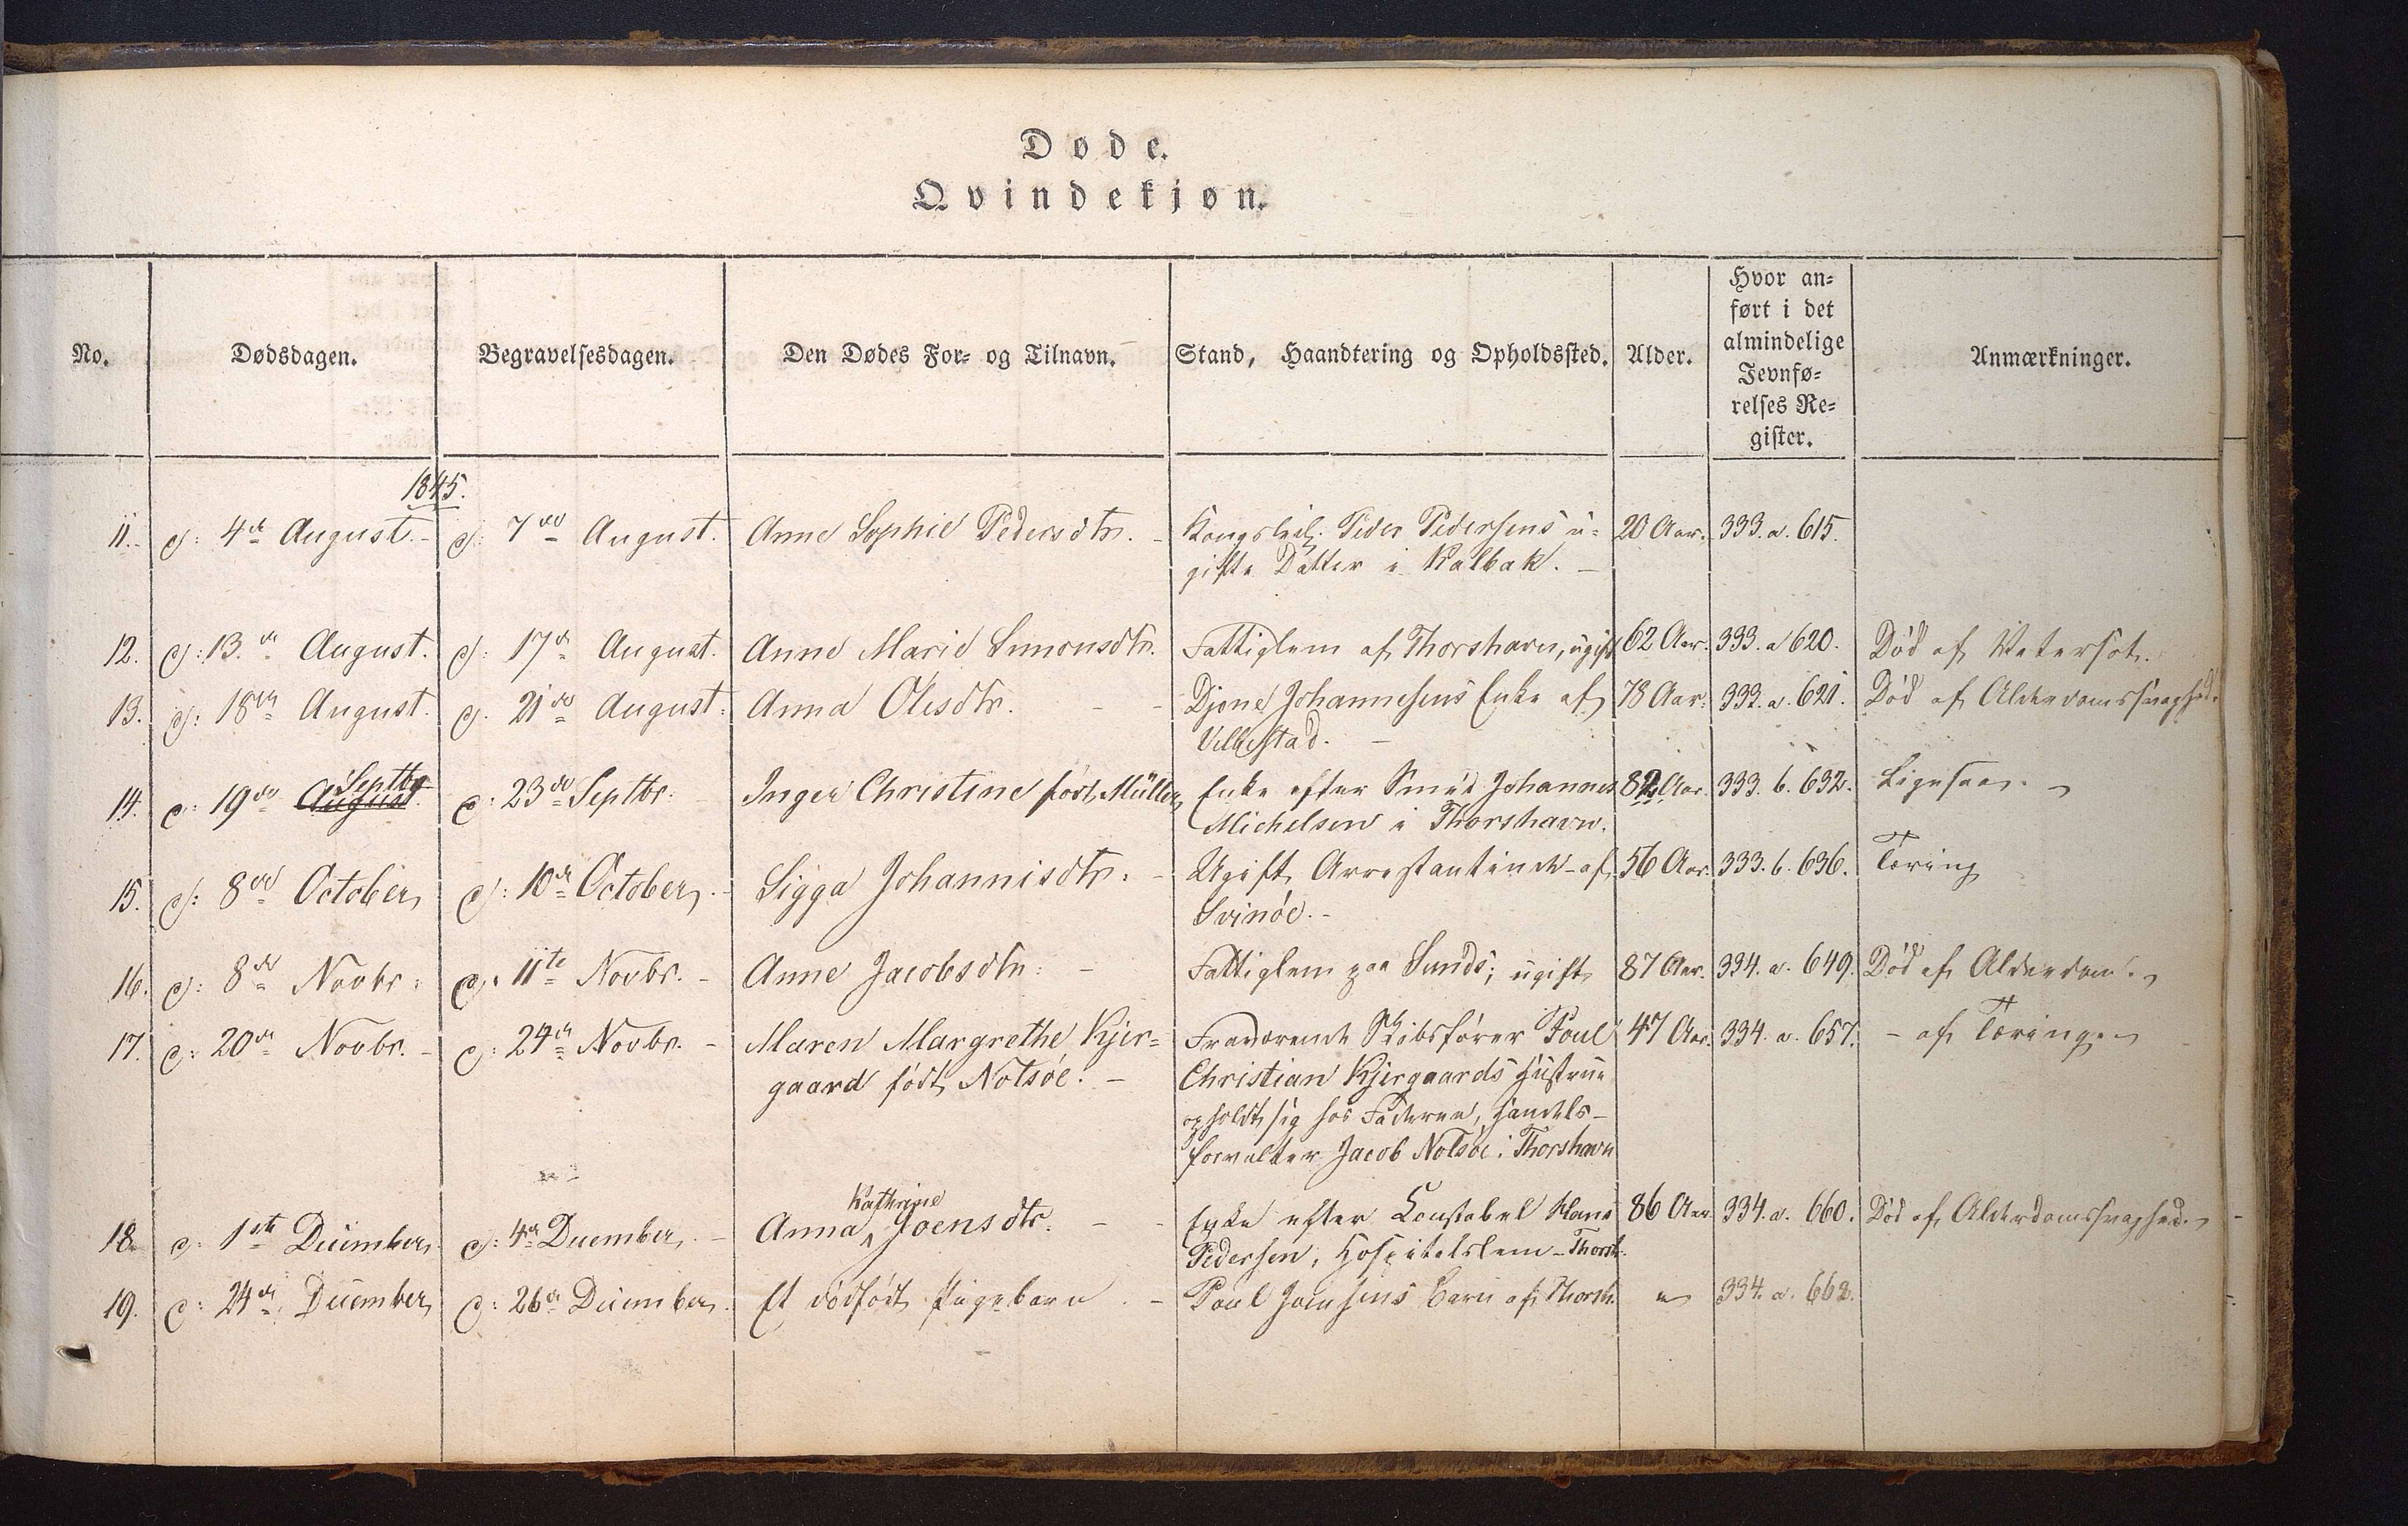 Døde.
Qvindekjøn.
No. Dødsdagen. Begravelsesdagen. Den Dødes For- og Tilnavn. Stand, Haandtering og Opholdssted. Alder. Hvor an=
ført i det
almindelige
Jevnfø=
relses Re=
gister. Anmærkninger.
1845.
11. d: 4de August. d: 7de August. Anne Sophie Pedersdtr. Kongsbd: Peder Pedersens u= 20 Aar. 333. a. 615.
gifte Datter i Kalbak.
12. d: 13de August. d: 17de August. Anne Marie Simonsdtr. Fattiglem af Thorshavn, ugift 62 Aar. 333. a 620. Død af Vatersot.
13. d: 18de August. d. 21de August. Anna Olesdtr. Djone Johannesens Enke af 78 Aar. 333. a. 621. Død af Alderdomssvaghed.
Velbestad.
Septbr
14. d: 19de August. d: 23de Septbr. Inger Christine født Müller Enke efter Smed Johannes 82 Aar. 333. b. 632. Ligesaa.
Michelsen i Thorshavn.
15. d: 8de October d: 10de October. Sigga Johannisdtr. Ugift Arrestantinde af 56 Aar. 333. b. 636. Tæring
Svinöe.
16. d: 8de Novbr. d. 11te Novbr. Anne Jacobsdtr. Fattiglem paa Sund; ugift 87 Aar. 334. a. 649. Død af Alderdom.
17. d: 20de Novbr. d: 24de Novbr. Maren Margrethe Kjer= Fraværende Skibsfører Poul 47 Aar. 334. a. 657. - af Tæringen
gaard født Nolsöe. Christian Kjergaards Hustrue
opholdt sig hos Faderen, Handels-
forvalter Jacob Nolsöe i Thorshavn
Kathrine
18. d. 1ste December d: 4de December. Anna Joensdtr. Enke efter Constabel Hans 86 Aar 334. a. 660. Død af Alderdomssvaghed.
Pedersen, Hospitalslem - Thorsh.
19. d: 24de December d: 26de December. Et dødfødt Pigebarn. Poul Joensens Barn af Thorsh. " 334. a. 662.